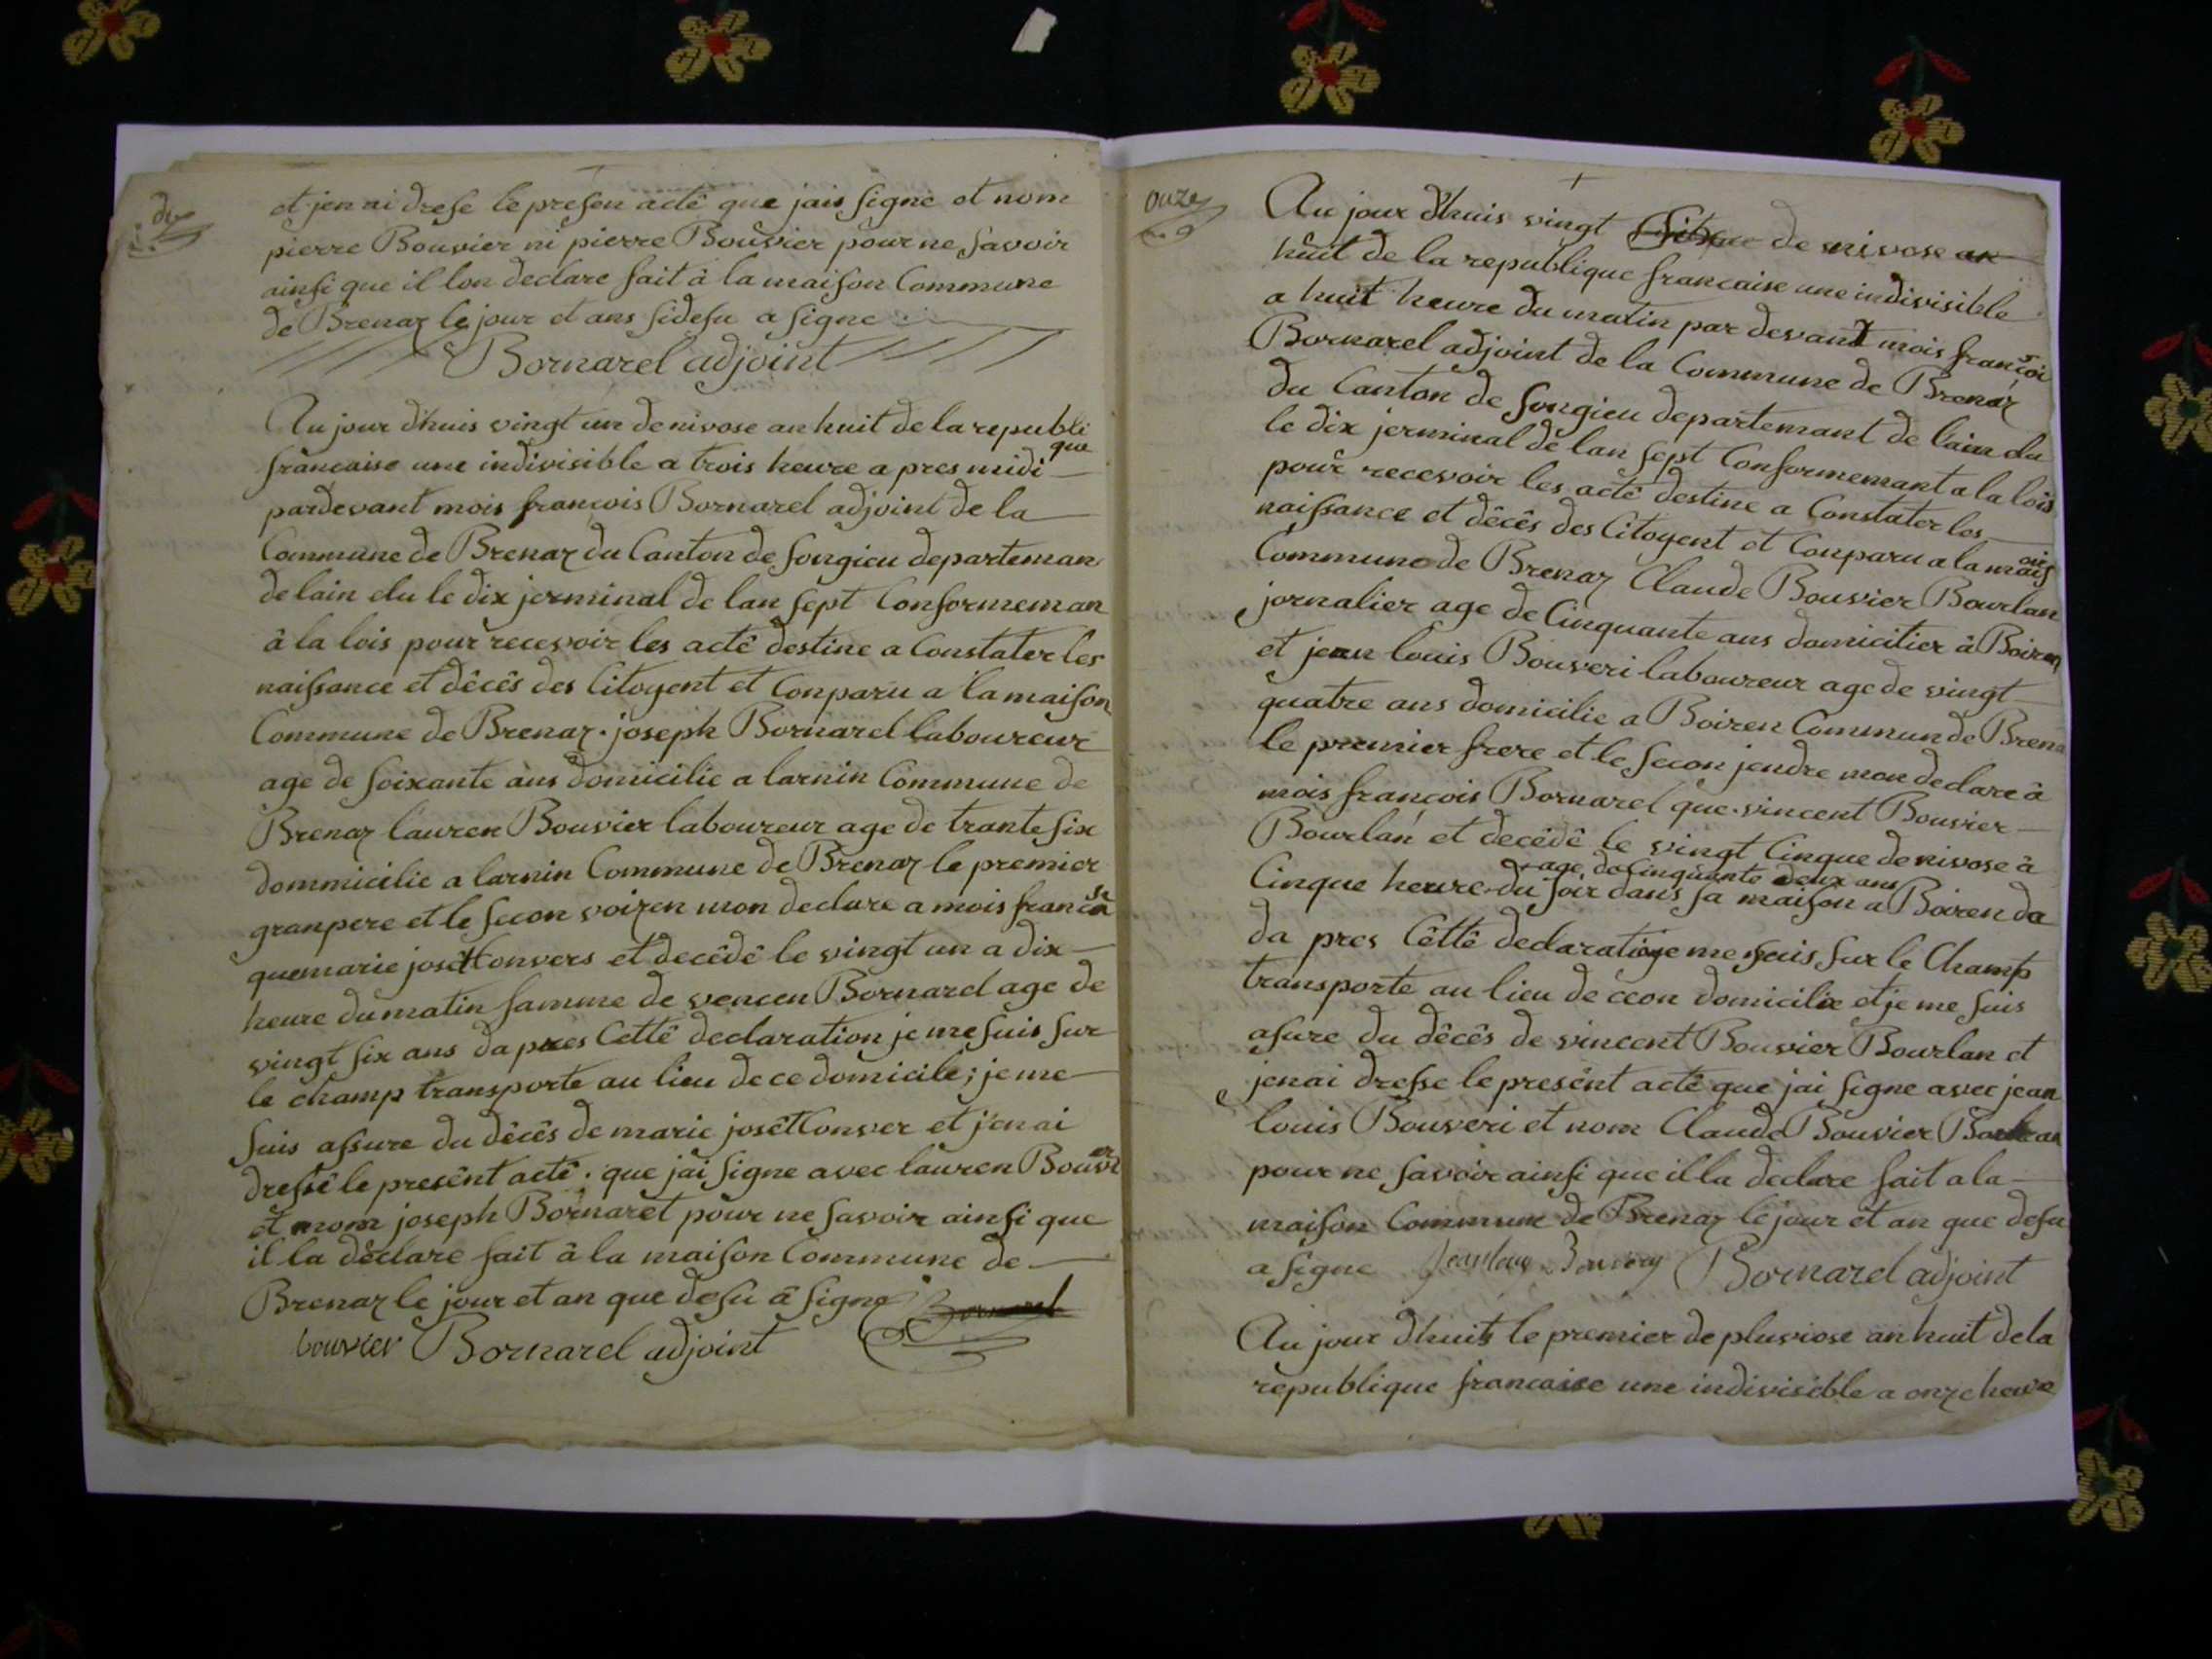 dix
et jen ai drese le presen actê que jais signe et nom
pierre Bouvier ni pierre Bouvier pour ne savoir
ainsi que il lon declare fait â la maison Commune
de Brenaz le jour et ans sidesu a signe
Bornarel adjoint
Au jour dhuis vingt un de nivose an huit de la republi
que
francaise une indivisible a trois heure a pres midi
pardevant mois francois Bornarel adjoint de la
Commune de Brenaz du Canton de songieu departeman
de lain elu le dix jerminal de lan sept Conformeman
â la lois pour recevoir les actê destine a Constater les
naissance et dêcês des Citoyent et Conparu a la maison
Commune de Brenaz. joseph Bornarel laboureur
age de soixante ans domicilie a larnin Commune de
Brenaz lauren Bouvier laboureur age de trante six
dommicilie a larnin Commune de Brenaz le premier
granpere et le secon voizen mon declare a mois franc
que marie josêt Convers et decêdê le vingt un a dix
heure du matin famme de vencen Bornarel age de
vingt six ans da pres Cettê declaration je me suis sur
le champ transporte au lieu de ce domicile; je me
suis assure du dêcês de marie josêt Conver et j'en ai
dressê le presênt actê. que jai signe avec lauren Bouvier
et nom joseph Bornaret pour ne savoir ainsi que
il la dêclare fait â la maison Commune de
Brenaz le jour et an que desu â signe Bornarel
bouvier Bornarel adjoint
onze
Au jour dhuis vingt de nivose an
huit de la republique francaise une indivisible
a huit heure du matin par devant mois françois
Bornarel adjoint de la Commune de Brenaz
du Canton de songieu departemant de lain elu
le dix jerminal de lan sept Conformemant a la lois
pour recevoir les actê destine a Constater les
naissance et dêcês des Citoyent et Conparu a la maison
Commune de Brenaz Claude Bouvier Bourlan
jornalier age de Cinquante ans domicitier â Boiren
et jean louis Bouveri laboureur age de vingt
quatre ans domicilie a Boiren Commun de Brena
le premier frere et le secon jendre mon declare â
mois françois Bornarel que. vincent Bouvier
Bourlan et decêdê le vingt Cinque de nivose â
age de Cinquante deux ans
Cinque heure du soir dans sa maison a Boiren da
da pres Cêttê declaration je me suis sur le Champ
transporte au lieu de ceon domicilie et je me suis
asure du dêcês de vincent Bouvier Bourlan et
jenai dresse le presênt actê que jai signe avec jean
louis Bouveri et nom Claude Bouvier Bourlan
pour ne savoir ainsi que il la declare fait a la
maison Commune de Brenaz le jour et an que desu
a signe Jean louis Bouvery Bornarel adjoint
Au jour dhuits le premier de pluviose an huit de la
republique francaise une indivisible a onze heure